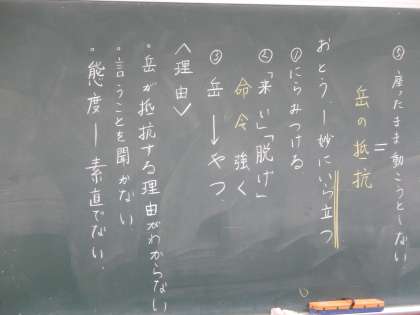 ⑤座ったまま動こうとしない
=
岳の抵抗
おとう、ー妙にいら立つ
①にらみつける
②「来い」「脱げ」
命令 強く
③岳→やつ
〈理由〉
・岳が抵抗する理由がわからない
・言うことを聞かない
・態度ー素直でない